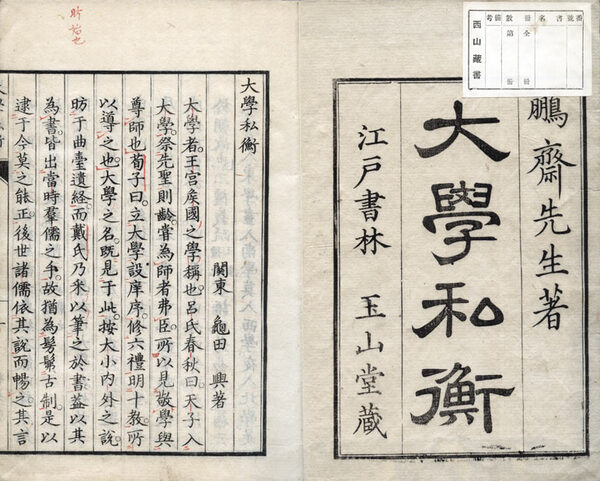 鵬齋先生著
大學私衡
江戸書林 玉山堂藏
番號
書名
冊數 全 冊
第 冊
備考
西山藏書
大學私衡
關東 龜田 興著
大學者。王宮矦國之學稱也。呂氏春秋曰。天子入
大學。祭先聖。則齒嘗為師者弗臣。所以見敬學與
尊師也。荀子曰。立大學。設庠序。修六禮。明十教。所
以導之也。大學之名。既見于此。按大小内外之說。
昉于曲臺遺經。而戴氏乃采以筆之於書。蓋以其
為書。皆出當時羣儒之手。故猶為髣髴古制。是以
逮于今莫之能正。後世諸儒依其說而暢之。其言
昉始也